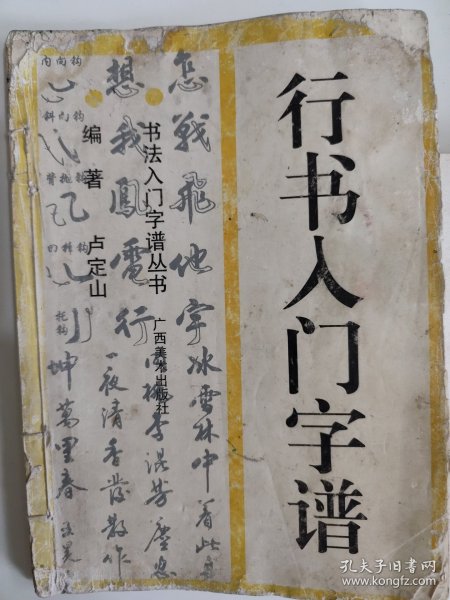 行书入门字谱
书法入门字谱丛书
广西美术出版社
编著 卢定山
怎戰飛他宇
冰雪林中著此身
桃李混芳塵忽
想我鳳電行
一夜清香發散作
内向钩
斜向钩
斜钩
坤萬里春
孔夫子旧书网
www.kongfz.com